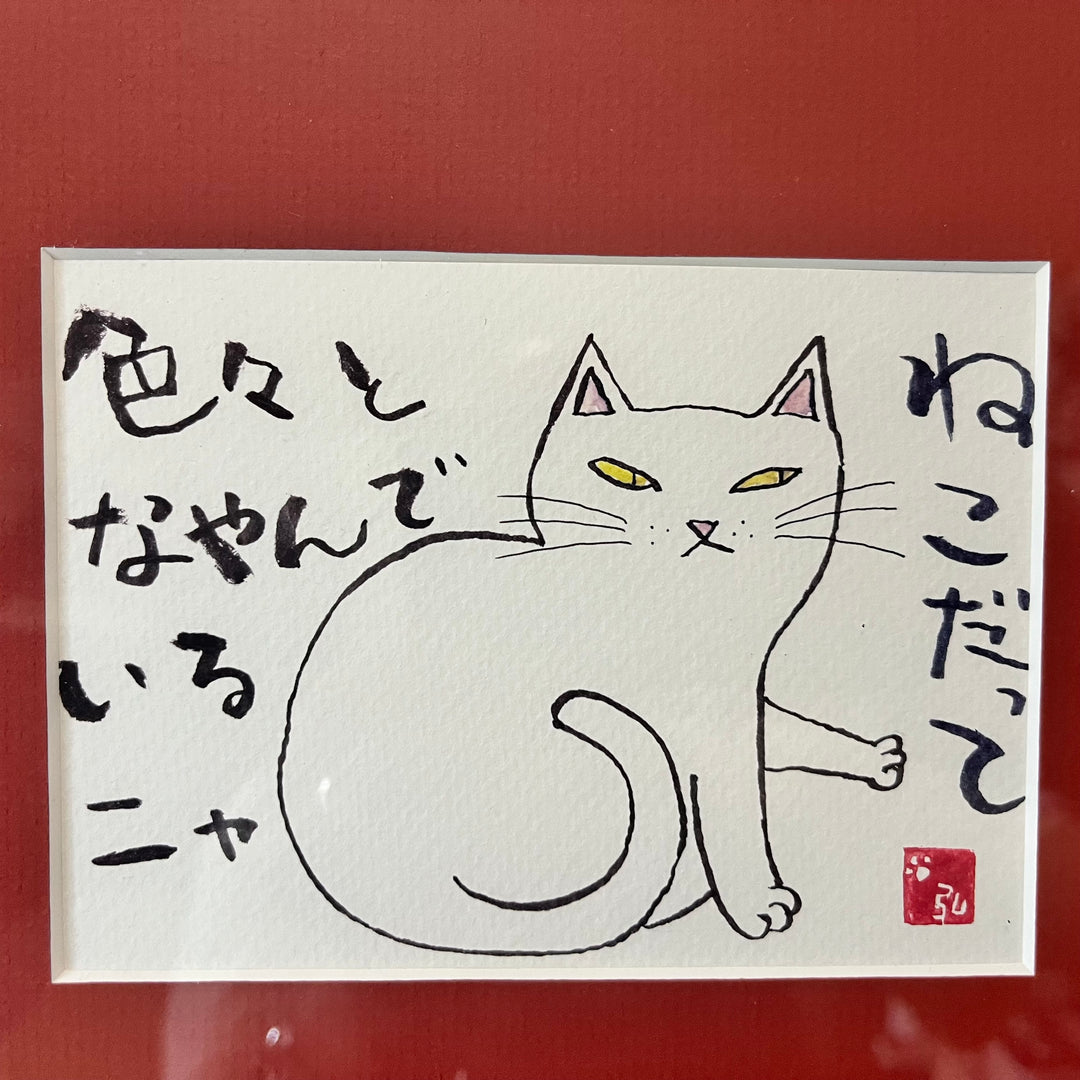 ねこだって
色々と
なやんで
いる
ニャ
弘